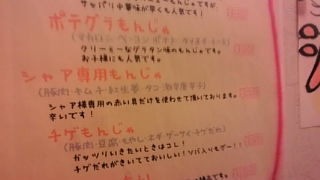 サッパリ中華味が早くも人気です!
ポテグラもんじゃ
(マカロニ・ベーコン・ポテト・
クリーミーなグラタン味のもんじゃです。
お子様にも人気です。
シャア専用もんじゃ
(豚肉・キムチ・紅生姜・タコ・
シャア様専用の赤い具だけを使わせて頂いております。
辛いです!
チゲもんじゃ
(豚肉・豆腐・もやし・ネギ・ザーサイ・チゲだれ)
ガッツリいきたいときはコレ!
チゲだれがきいてておいしい!ソバ入りもグー!!